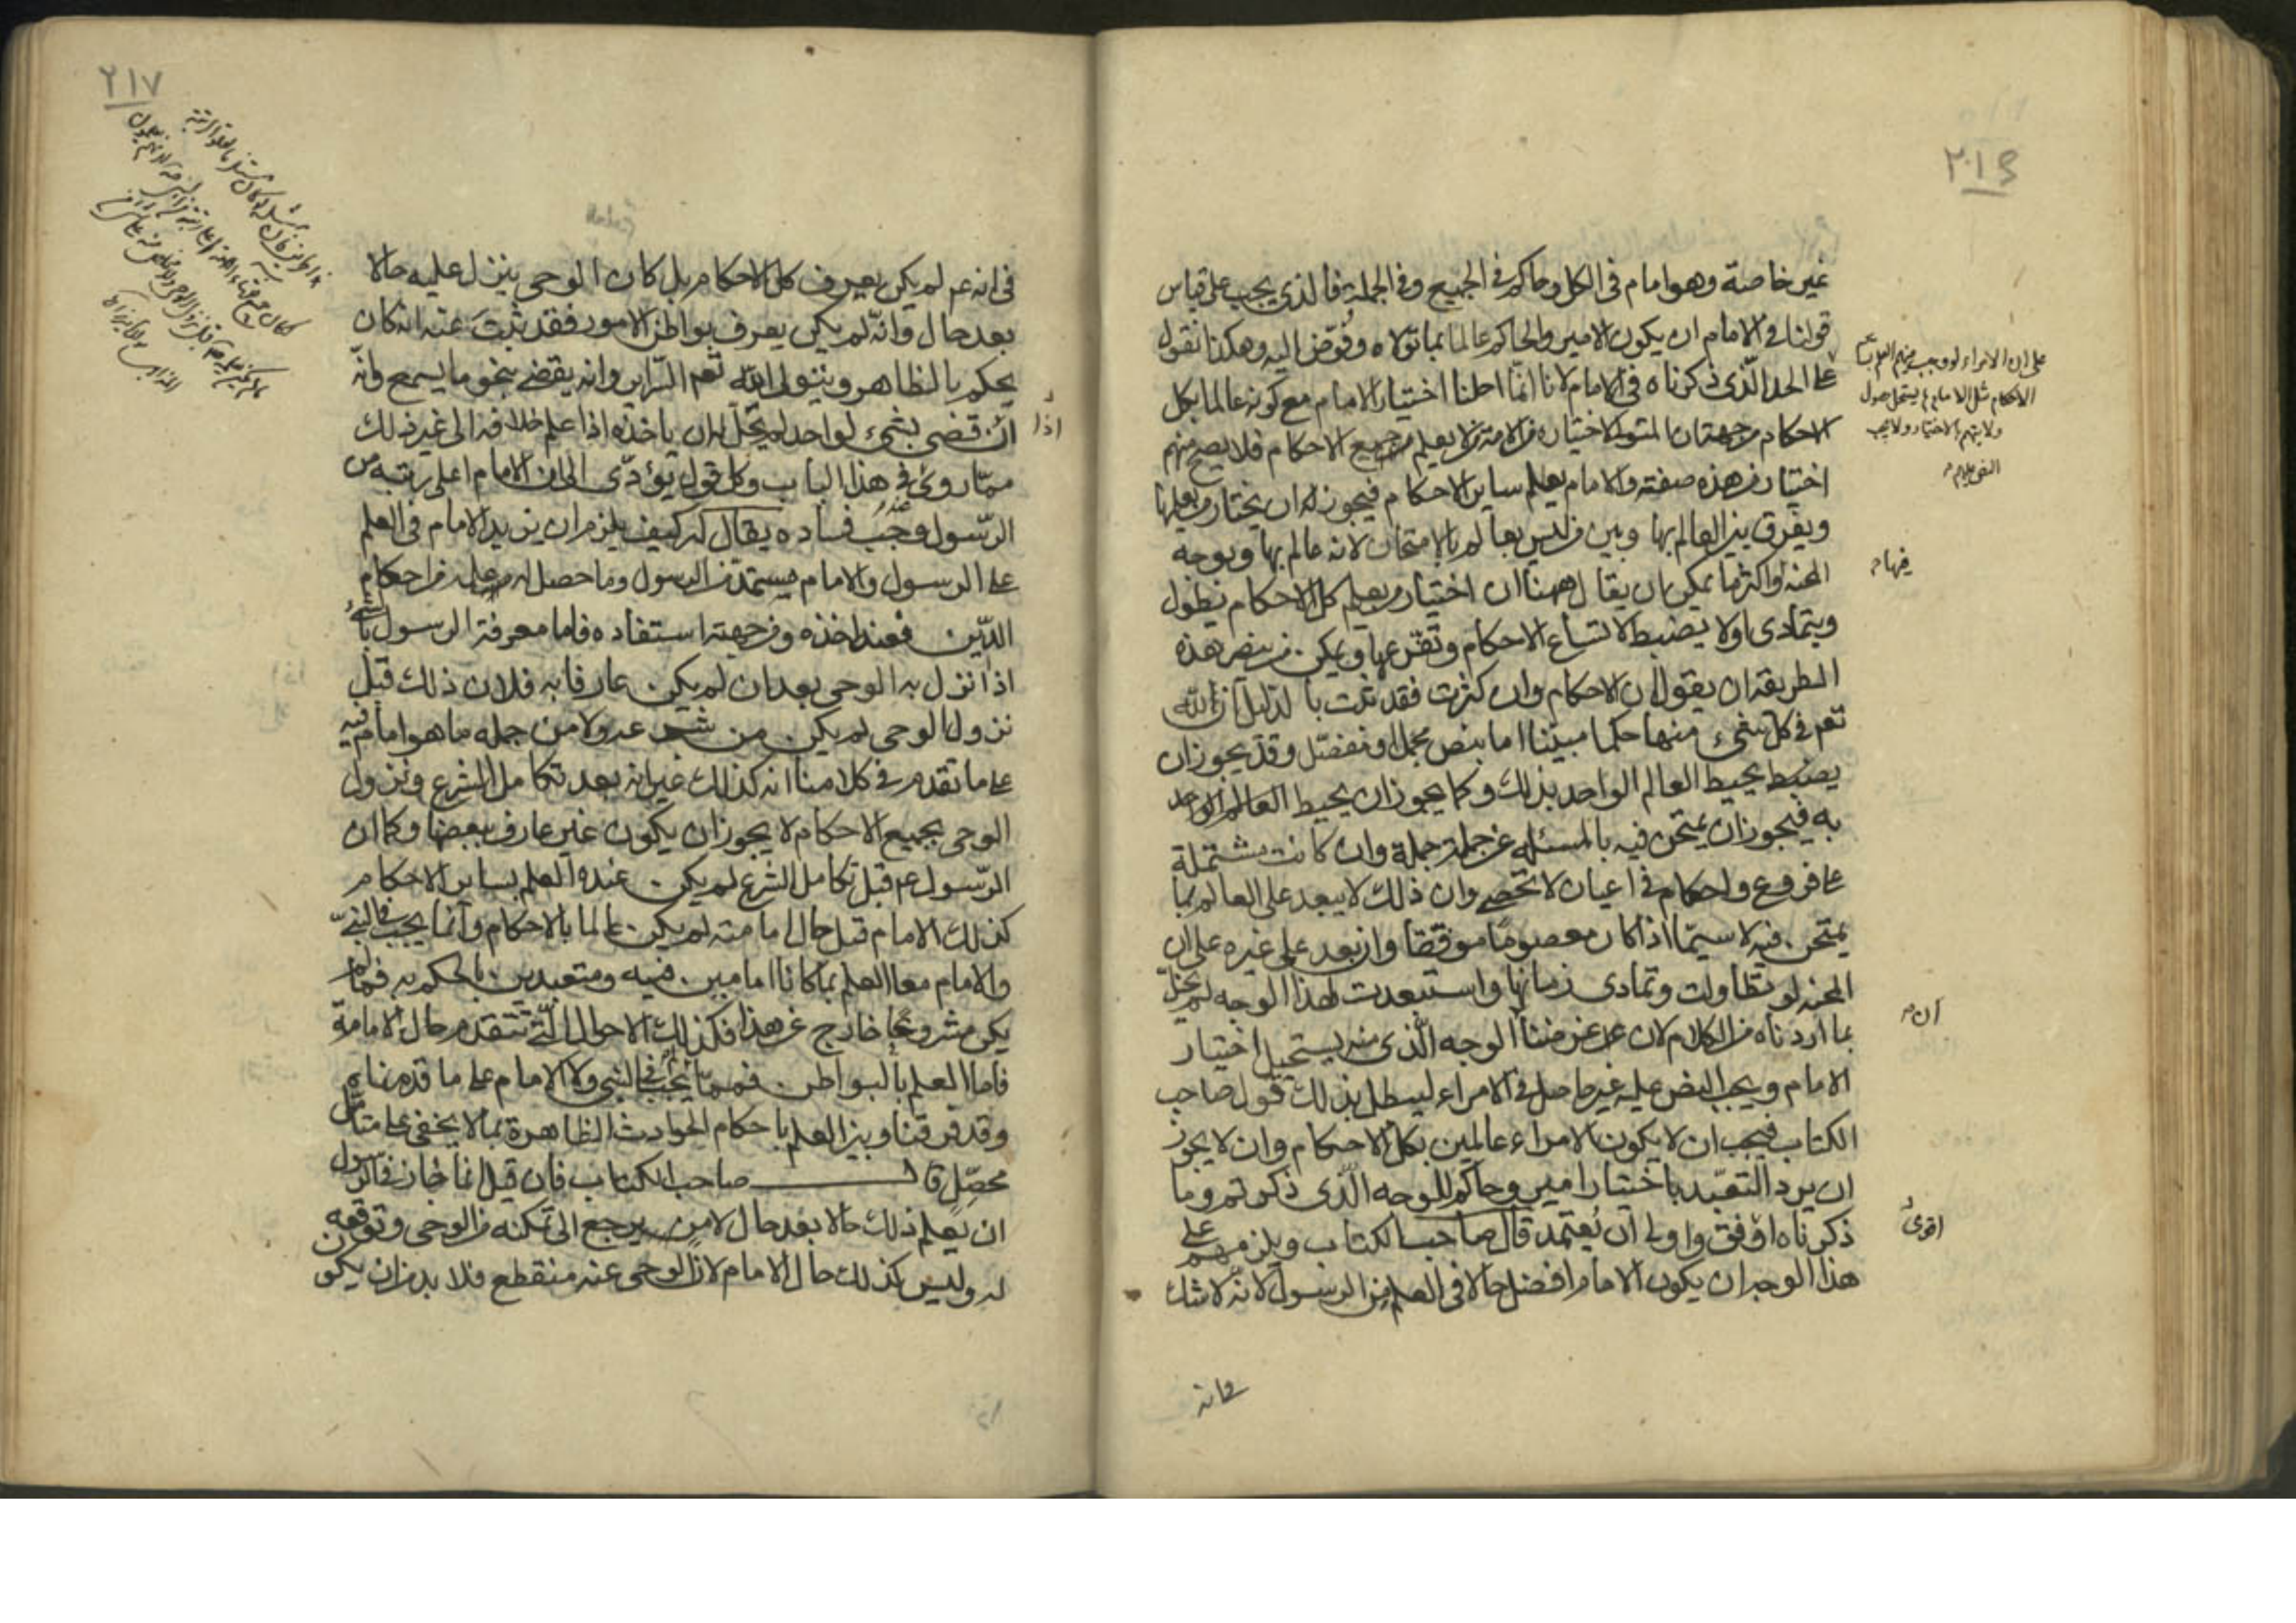 غير خاصة وهو امام في الكل وحاكم في الجميع وفي الجملة فالذي يجب على قياس
قولنا في الامام ان يكون الامير والحاكم عالما بما تولاه وفوض اليه وهكذا نقول
على الحد الذي ذكرناه في الامام لانا انما احلنا اختيار الامام مع كونه عالما بكل
الاحكام من جهة ان المتولي لاختياره من الامة لا يعلم جميع الاحكام فلا يصح منهم
اختيار من هذه صفته والامام يعلم ساير الاحكام فيجوز له ان يختار من يعلمها
ويفرق بين العالم بها وبين من ليس بعالم بالامتحان لانه عالم بها وبوجه
المحنة واكثر ما يمكن ان يقال ههنا ان اختيار من يعلم كل الاحكام يطول
ويتمادى اولا يضبط لاتساع الاحكام وتفرعها ويمكن من ينصر هذه
الطريقة ان يقول ان الاحكام وان كثرت فقد ثبت بالدليل ان لله
تعم في كل شيء منها حكما مبينا اما بنص مجمل او مفصل وقد يجوز ان
يضبط يحيط العالم الواحد بذلك وكما يجوز ان يحيط العالم الواحد
به فيجوز ان يمتحن فيه بالمسئله عن جملة جملة وان كانت مشتملة
على فروع واحكام في اعيان لا تحصى وان ذلك لا يبعد على العالم بما
يمتحن فيه لا سيما اذا كان معصوما موفقا وان بعد على غيره على ان
المحنه لو تطاولت وتمادى زمانها واستبعدت لهذا الوجه لم يخل
بما اردناه من الكلام لان غرضنا الوجه الذي منه يستحيل اختيار
الامام ويجب النص عليه غير حاصل في الامراء ليبطل بذلك قول صاحب
الكتاب فيجب ان لا يكون الامراء عالمين بكل الاحكام وان لا يجوز
ان يرد التعبد باختيار امير وحاكم للوجه الذي ذكرتم وما
ذكرناه اوفق واولى ان يعتمد قال صاحب الكتاب ويلزمهم على
هذا الوجه ان يكون الامام افضل حالا في العلم من الرسول لانه لا شك
على ان الامراء لو وجب فيهم العلم
الاحكام مثل الامام لم يستحل حصول
ولايتهم بالاختيار ولا يجب
النص عليهم
فيها
ان
اقوى
في انه
٢١٧
في انه عم لم يكن يعرف كل الاحكام بل كان الوحي ينزل عليه حالا
بعد حال وانه لم يكن يعرف بواطن الامور فقد ثبت عنه انه كان
يحكم بالظاهر ويتولى الله تعم السراير وانه يقضي بنحو ما يسمع وانه
ان قضى بشيء لواحد لم يحل له ان ياخذه اذا علم خلافه الى غير ذلك
مما روي في هذا الباب وكل قول يؤدي الى ان الامام اعلى رتبة من
الرسول وجب فساده يقال له كيف يلزم ان يزيد الامام في العلم
على الرسول والامام مستمد من الرسول وما حصل له من علمه من احكام
الدين فعنه اخذه ومن جهته استفاده فاما معرفة الرسول بالشيء
اذا نزل به الوحي بعد ان لم يكن عارفا به فلان ذلك قبل
نزول الوحي لم يكن من شرعه ولا من جمله ما هو امام فيه
على ما تقدم في كلامنا انه كذلك غير انه بعد تكامل الشرع ونزول
الوحي بجميع الاحكام لا يجوز ان يكون غير عارف ببعضها وكما ان
الرسول عم قبل تكامل الشرع لم يكن عنده العلم بساير الاحكام
كذلك الامام قبل حال امامته لم يكن عالما بالاحكام وانما يجب في النبي
والامام معا العلم بما كانا امامين فيه ومتعبدين بالحكم به فما لم
يكن مشروعا خارج عن هذا فكذلك الاحوال التي تتقدم حال الامامة
فاما العلم بالبواطن فمما لا يجب في النبي ولا الامام على ما قدمناه
وقد فرقنا وبين العلم باحكام الحوادث الظاهرة بما لا يخفى على متامل
محصل قال صاحب الكتاب فان قيل انما جاز في الرسول
ان يعلم ذلك حالا بعد حال لامر يرجع الى تمكنه من الوحي وتوقعه
له وليس كذلك حال الامام لان الوحي عنه منقطع فلا بد من ان يكون
اذا